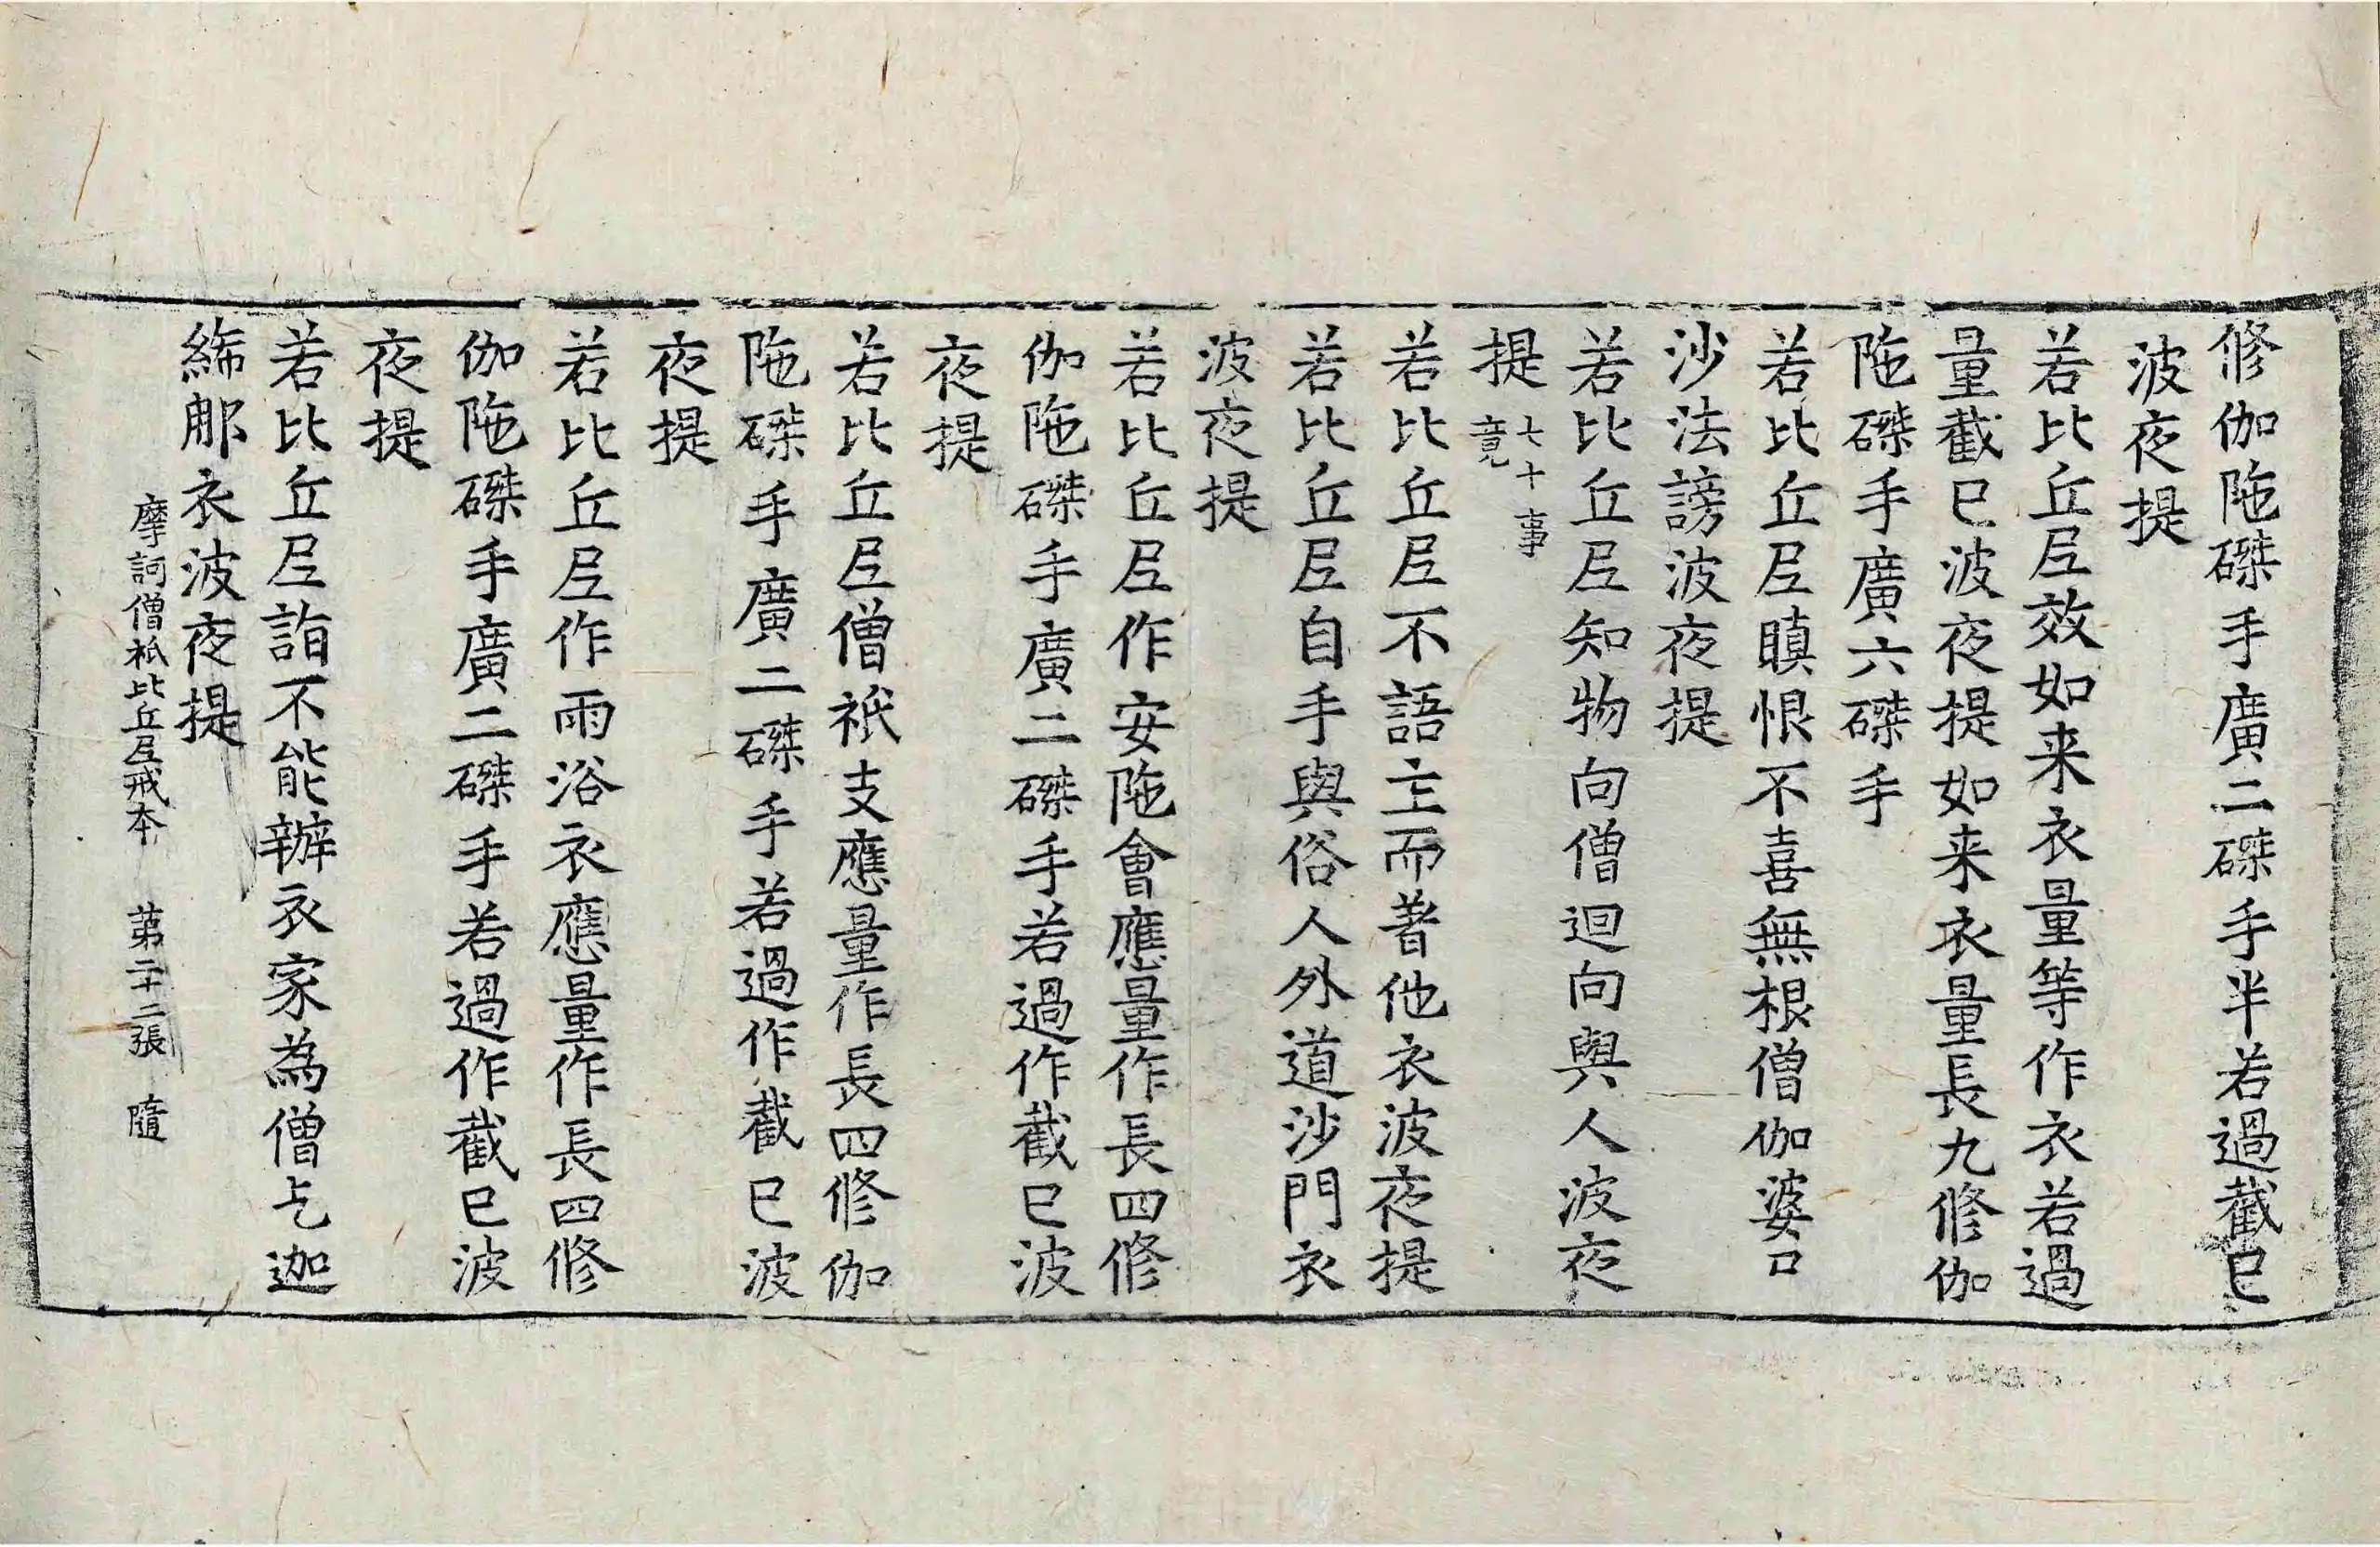 修伽陁磔手廣二磔手半若過截已
波夜提
若比丘尼效如来衣量等作衣若過
量截已波夜提如来衣量長九修伽
陁磔手廣六磔手
若比丘尼瞋恨不喜無根僧伽婆尸
沙法謗波夜提
若比丘尼知物向僧迴向與人波夜
提七十事竟
若比丘尼不語主而著他衣波夜提
若比丘尼自手與俗人外道沙門衣
波夜提
若比丘尼作安陁會應量作長四修
伽陁磔手廣二磔手若過作截已波
夜提
若比丘尼僧祇支應量作長四修伽
陁磔手廣二磔手若過作截已波
夜提
若比丘尼作雨浴衣應量作長四修
伽陁磔手廣二磔手若過作截已波
夜提
若比丘尼詣不能辦衣家為僧乞迦
絺那衣波夜提
摩訶僧祇比丘尼戒本 第二十二張 隨